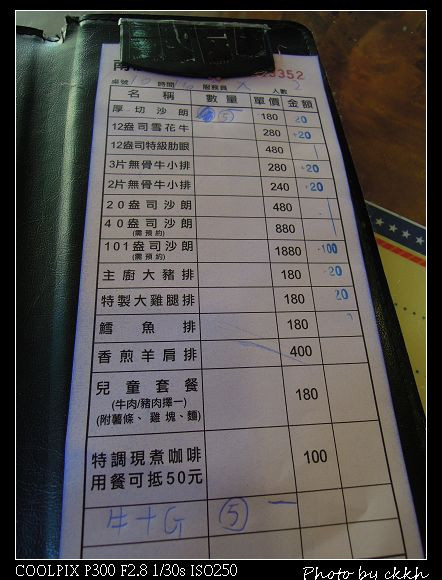 南
3352
桌號 時間 服務員 人數 2
名稱 數量 單價 金額
厚切沙朗 ⑤ 一 180 20
12盎司雪花牛 280 +20
12盎司特級肋眼 480
3片無骨牛小排 280 +20
2片無骨牛小排 240 +20
20盎司沙朗 480
40盎司沙朗 880
(需預約)
101盎司沙朗 1880 -100
(需預約)
主廚大豬排 180 -20
特製大雞腿排 180 20
鱈魚排 180
香煎羊肩排 400
兒童套餐 180
(牛肉/豬肉擇一)
(附薯條、雞塊、麵)
特調現煮咖啡 100
用餐可抵50元
牛+G ⑤ 一
COOLPIX P300 F2.8 1/30s ISO250
Photo by ckkh